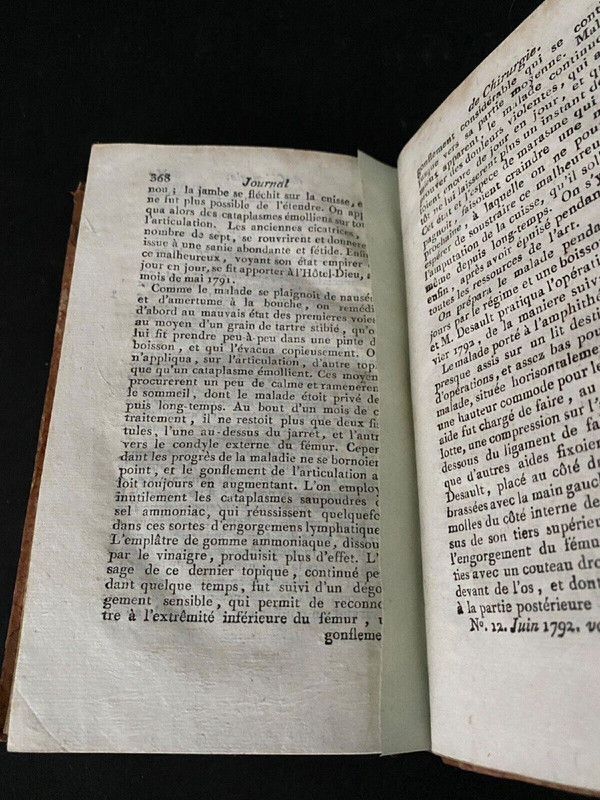 368
Journal
nou ; la jambe se fléchit sur la cuisse, e
ne fut plus possible de l'étendre. On app
qua alors des cataplasmes émolliens sur to
l'articulation. Les anciennes cicatrices,
nombre de sept, se rouvrirent et donnère
issue à une sanie abondante et fétide. Enfin
ce malheureux, voyant son état empirer
jour en jour, se fit apporter à l'Hôtel-Dieu,
mois de mai 1791.
Comme le malade se plaignoit de nausée
et d'amertume à la bouche, on remédi
d'abord au mauvais état des premières voies
au moyen d'un grain de tartre stibié, qu'o
lui fit prendre peu-à-peu dans une pinte d
boisson, et qui l'évacua copieusement. O
n'appliqua, sur l'articulation, d'autre top
que qu'un cataplasme émollient. Ces moyen
procurerent un peu de calme et ramenèren
le sommeil, dont le malade étoit privé de
puis long-temps. Au bout d'un mois de c
traitement, il ne restoit plus que deux fis
tules, l'une au-dessus du jarret, et l'autr
vers le condyle externe du fémur. Cepen
dant les progrès de la maladie ne se bornoien
point, et le gonflement de l'articulation a
loit toujours en augmentant. L'on employ
inutilement les cataplasmes saupoudrés
sel ammoniac, qui réussissent quelquefo
dans ces sortes d'engorgemens lymphatique
L'emplâtre de gomme ammoniaque, dissou
par le vinaigre, produisit plus d'effet. L'
sage de ce dernier topique, continué pe
dant quelque temps, fut suivi d'un dégo
gement sensible, qui permit de reconno
tre à l'extrêmité inférieure du fémur,
gonfleme
de Chirurgie.
gonflement considérable qui se cont
vers sa partie moyenne. Mal
apparent, le malade continuo
douleurs violentes, qui
encore de jour en jour, et qu
laissèrent plus un instant de
Cet état et l'espece de marasme qui
pagnoit, faisoient craindre une
prochaine, à laquelle on ne pou
espérer de soustraire ce malheureux
l'amputation de la cuisse, qu'il sol
même depuis long-temps. On s'y
enfin, après avoir épuisé pendan
toutes les ressources de l'art.
On prépara le malade penda
jours par le régime et une boisson
et M. Desault pratiqua l'opérati
vier 1792, de la maniere suiv
Le malade porté à l'amphithé
presque assis sur un lit destin
d'opérations, et assez bas pou
malade, située horisontaleme
une hauteur commode pour le
aide fut chargé de faire, au
lotte, une compression sur l'a
dessous du ligament de fa
que d'autres aides fixoien
Desault, placé au côté du
brassées avec la main gauch
molles du côté interne de
sus de son tiers supérieu
l'engorgement du fému
ties avec un couteau dro
devant de l'os, et dont
à la partie postérieure
No. 12. Juin 1792. vo